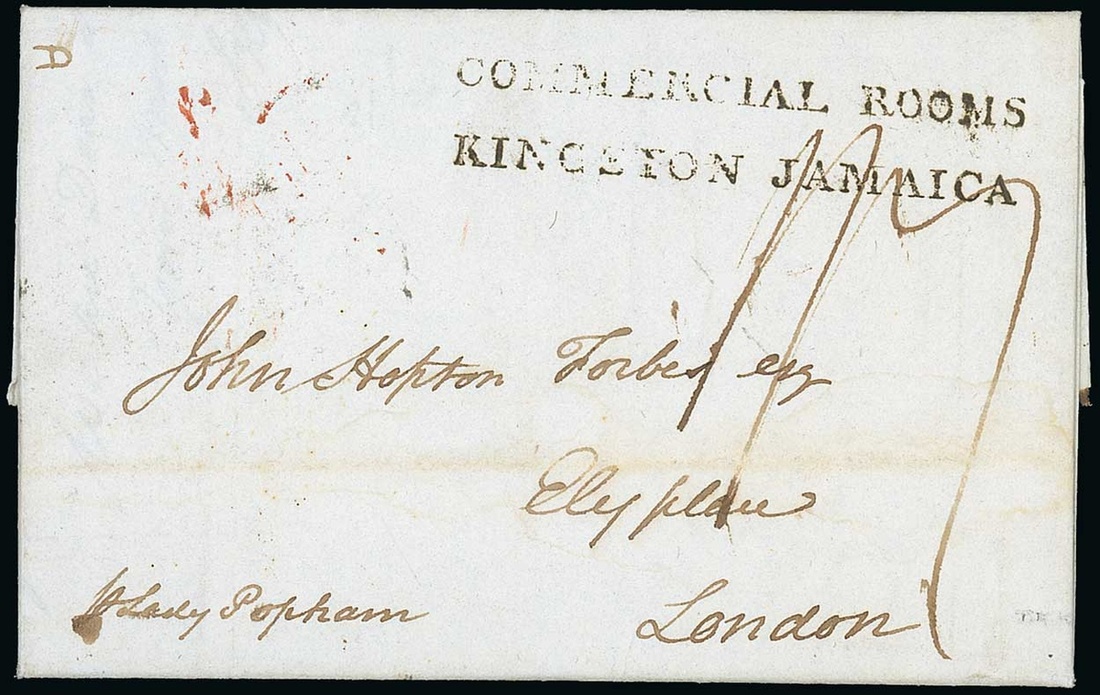 A
COMMERCIAL ROOMS
KINGSTON JAMAICA
John Hopton Forbes esq
Ely place
London
p Lady Popham